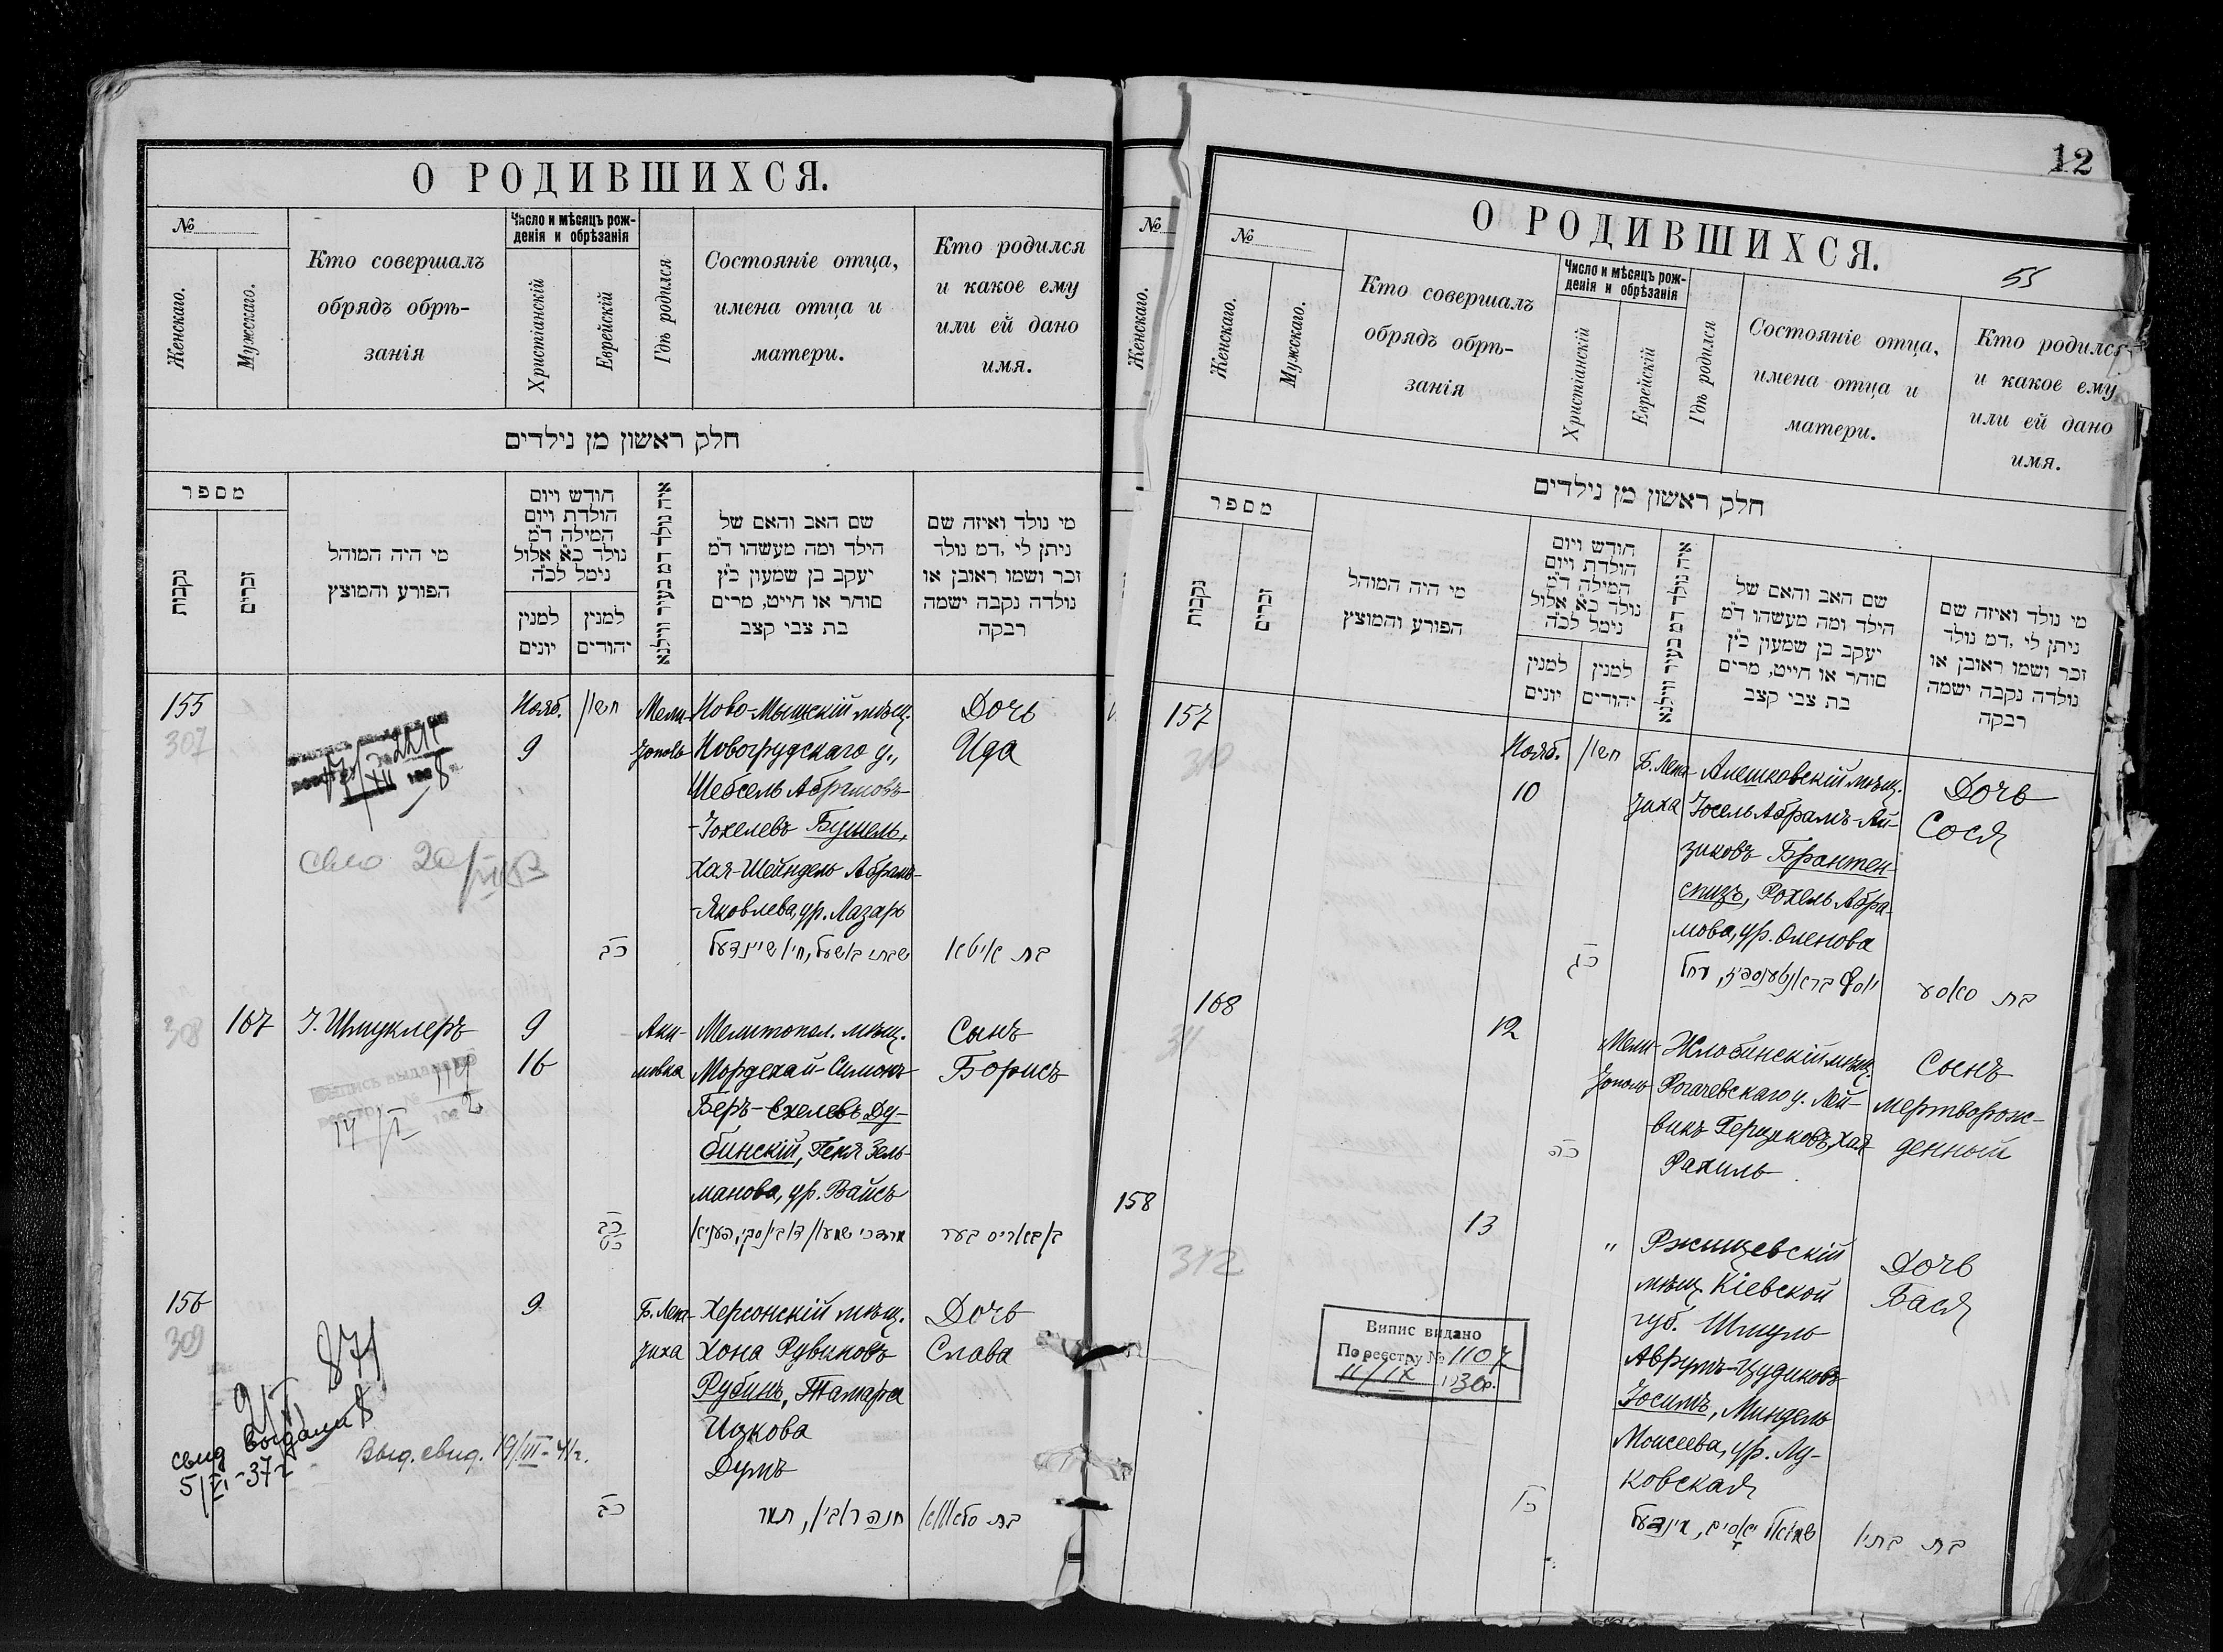 О РОДИВШИХСЯ.
№
Женскаго.
Мужскаго.
Кто совершалъ
обрядъ обрѣ-
занія
Число и мѣсяцъ рож-
денія и обрѣзанія
Христіанскій
Еврейскій
Гдѣ родился
Состояніе отца,
имена отца и
матери.
Кто родился
и какое ему
или ей дано
имя.
חלק ראשון מן נילדים
מספר
נקבות
זכרים
מי היה המוהל
הפורע והמוצץ
חודש ויום
הולדת ויום
המילה ד״מ
נולד כ״א אלול
נימל לכ״ה
למנין
יונים
למנין
יהודים
איה נולד דמ בעיר ווילנא
שם האב והאם של
הילד ומה מעשהו ד״מ
יעקב בן שמעון כ״ץ
סוחר או חייט, מרים
בת צבי קצב
מי נולד ואיזה שם
ניתן לי ,דמ נולד
זכר ושמו ראובן או
נולדה נקבה ישמה
רבקה
155
307
Нояб.
9
חשון
Мели-
тополь
Ново-Мышскій мѣщ.
Новогрудскаго у.,
Шебсель Абрамовъ-
-Іохелевъ Бушель,
Хая-Шейндель Абрамъ-
-Яковлева, ур. Лазарь
Дочь
Ида
כב
בת איטא
308
167
І. Шмуклеръ
9
16
Аки-
мовка
Мелитопол. мѣщ.
Мордехай-Симонъ
Беръ-Ехелевъ Ду-
бинскій, Геня Зель-
манова, ур. Вайсъ
Сынъ
Борисъ
14/I
כב
כט
מרדכי שמעון דובינסקי, העניא
בן באריס בער
156
309
9
Б. Лепа-
тиха
Херсонскій мѣщ.
Хона Рувиновъ
Рубинъ, Тамара
Ицкова
Думъ
Дочь
Слава
871
свид выдали
5/VI-37 г
Выд. свид. 19/III-41г.
כב
חנה רובין, תמר
בת סלאווא
12
О РОДИВШИХСЯ.
55
№
Женскаго.
Мужскаго.
Кто совершалъ
обрядъ обрѣ-
занія
Число и мѣсяцъ рож-
денія и обрѣзанія
Христіанскій
Еврейскій
Гдѣ родился
Состояніе отца,
имена отца и
матери.
Кто родился
и какое ему
или ей дано
имя.
חלק ראשון מן נילדים
מספר
נקבות
זכרים
מי היה המוהל
הפורע והמוצץ
חודש ויום
הולדת ויום
המילה ד״מ
נולד כ״א אלול
נימל לכ״ה
למנין
יונים
למנין
יהודים
איה נולד דמ בעיר ווילנא
שם האב והאם של
הילד ומה מעשהו ד״מ
יעקב בן שמעון כ״ץ
סוחר או חייט, מרים
בת צבי קצב
מי נולד ואיזה שם
ניתן לי ,דמ נולד
זכר ושמו ראובן או
נולדה נקבה ישמה
רבקה
157
310
Нояб.
10
חשון
Б. Лепа-
тиха
Алешковскій мѣщ.
Іосель Абрамъ-Ай-
зиковъ Брантен-
Рохель Абра-
мова, ур. Оленова
Дочь
Сося
כג
בת סאסע
168
311
12
Мели-
тополь
Жлобинскій мѣщ.
Рогачевскаго у. Лей-
Хая
Рахиль
Сынъ
мертворож-
денный
כה
158
312
13
"
Ржищевскій
мѣщ. Кіевской
губ. Шмуль
Аврумъ-Цудиковъ
Іосимъ, Миндель
Моисеева, ур. Лу-
ковская
Дочь
Бася
Випис видано
По реєстру № 1107
11/IX 1930р.
כו
בת בתיא